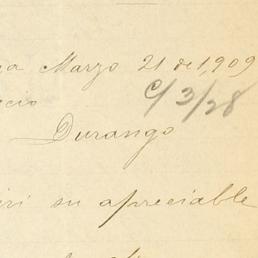 Marzo 21 de 1,909
C/3/28
Durango
su apreciable